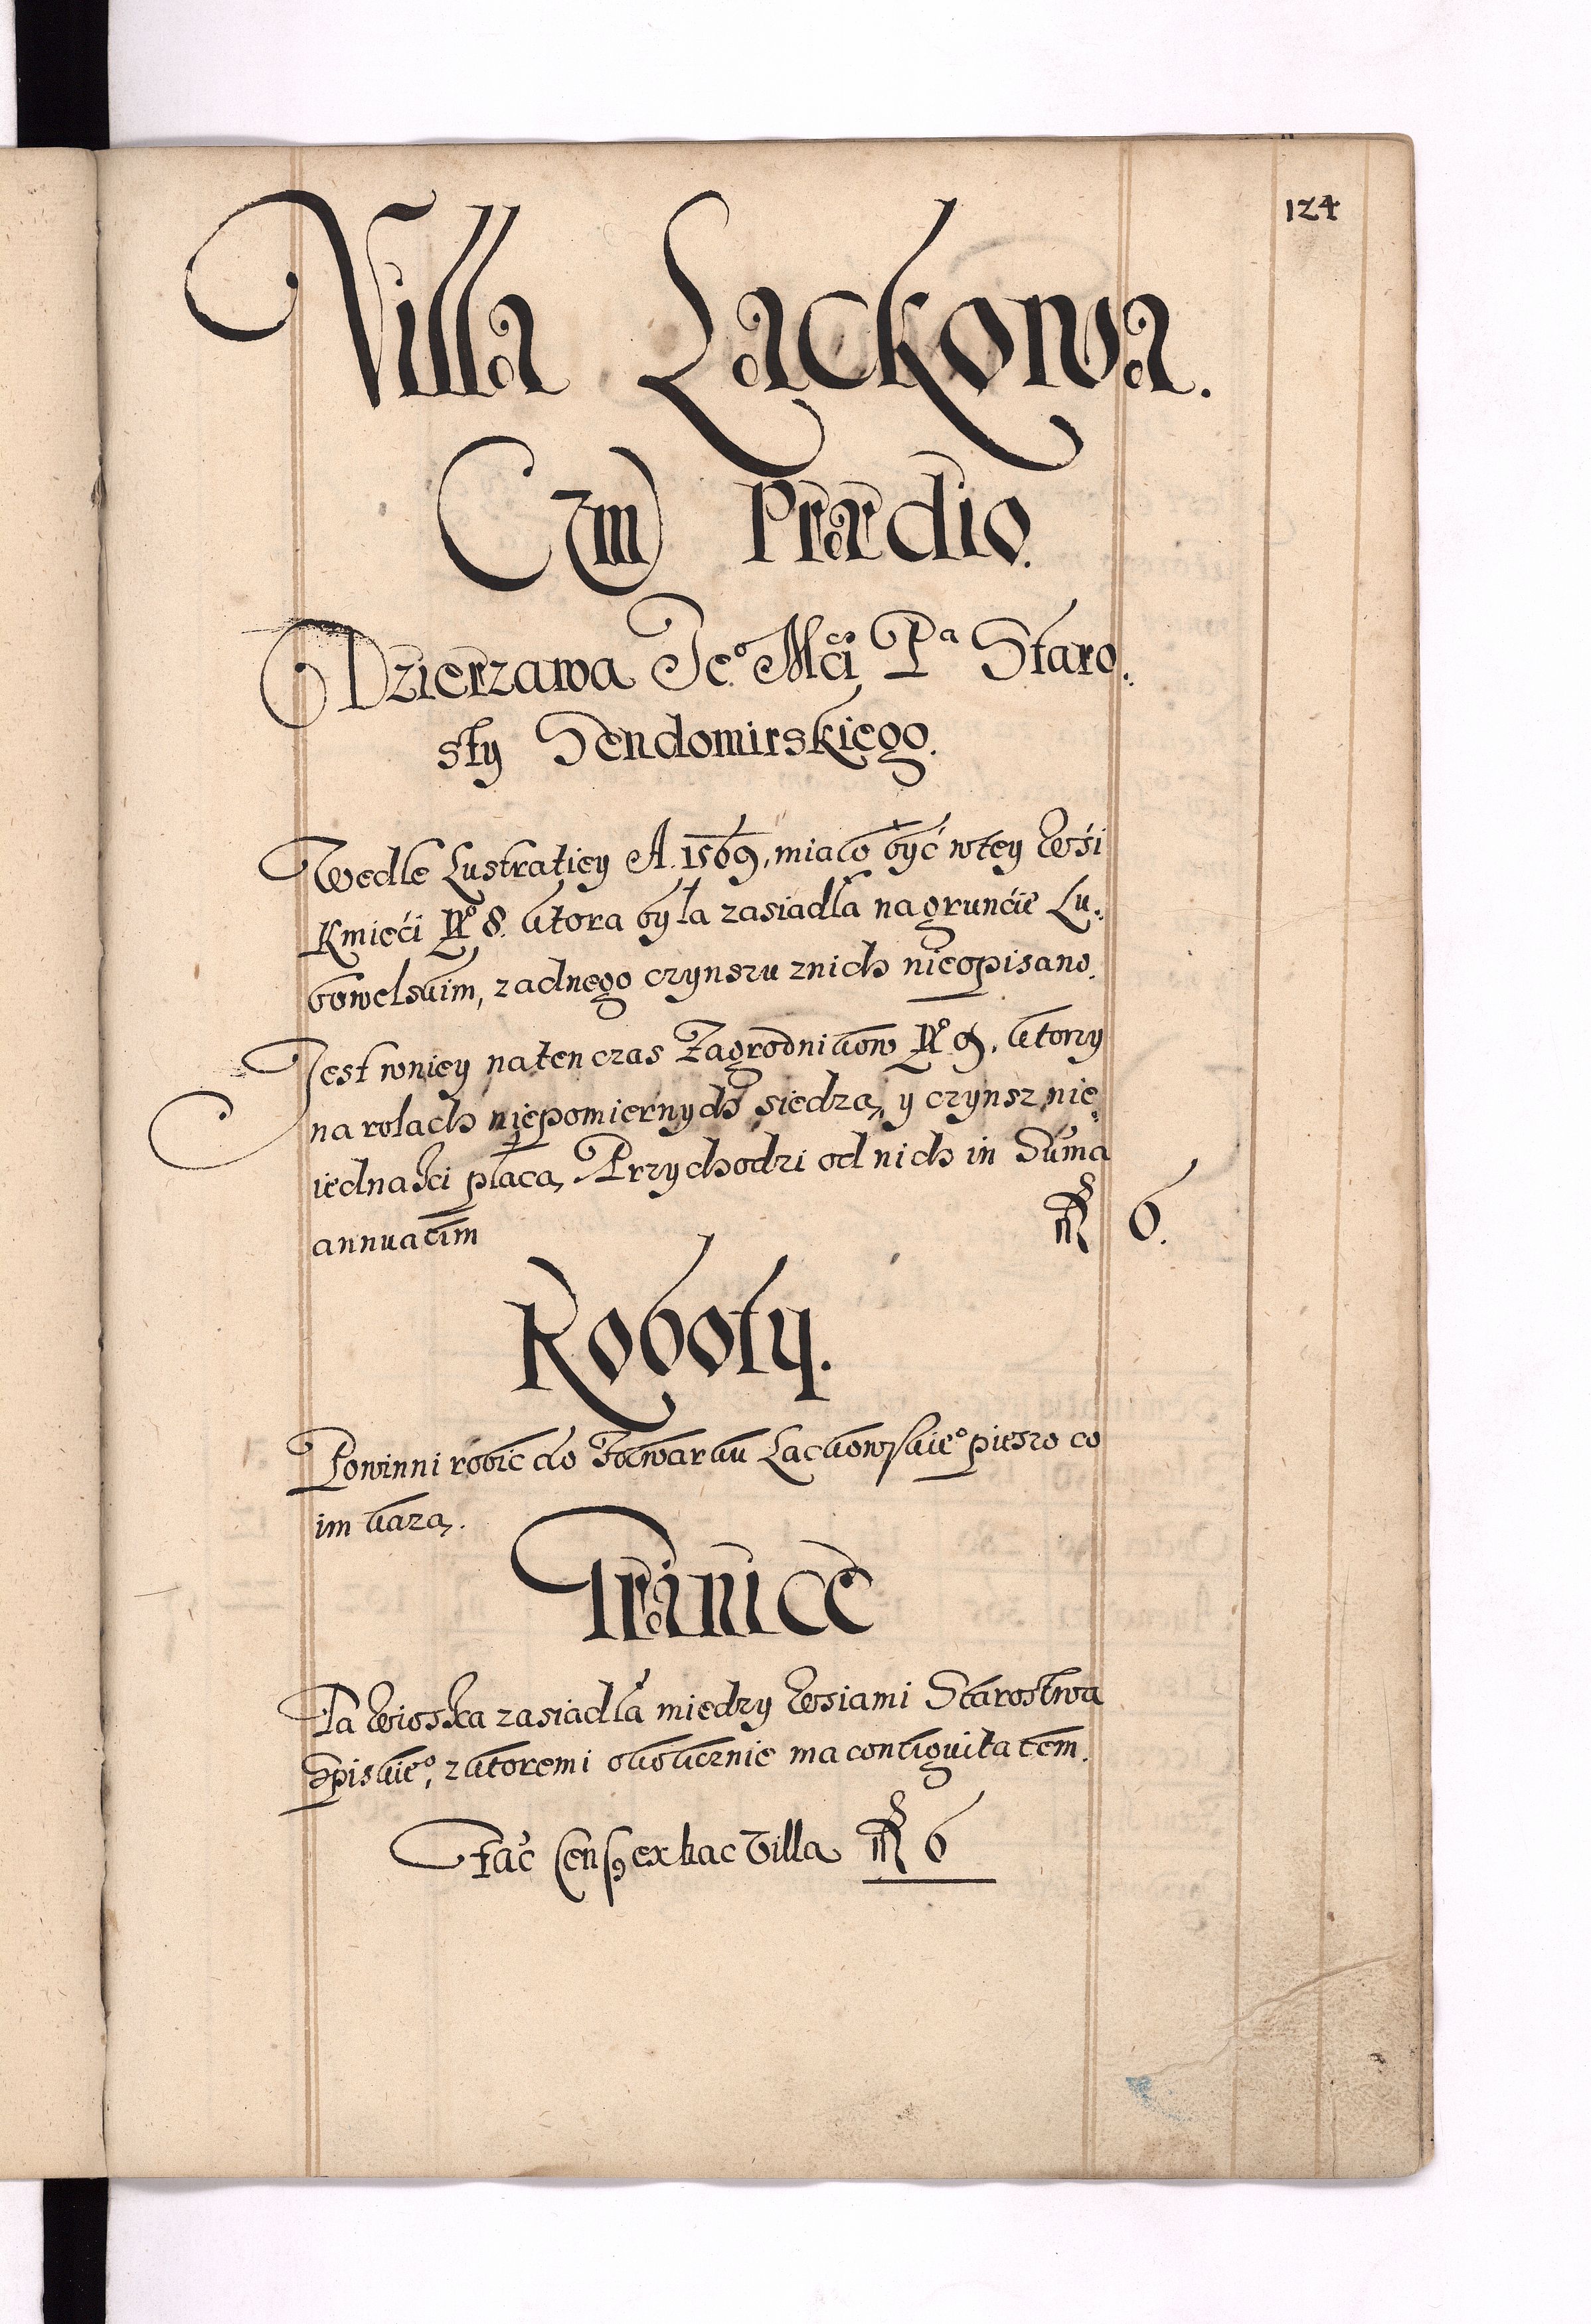 124
Villa Lackowa.
Cum Prædio.
Dzierzawa Je° Mći Pª Staro:
sty Sendomirskiego.
Wedle Lustratiey A. 1569, miało być wtey Wśi
Kmieći N° 8. ktora była zasiadła na grunćie Lu:
bowelskim, zadnego czynszu znich nieopisano.
Jest wniey naten czas Zagrodnikow N° 9. ktorzy
na rolach niepomiernych siedzą, y czynsz nie
iednaki płacą, Przychodzi od nich in Suma
annuatim 6.
Roboty.
Powinni robic do Folwarku Lackowskie° pieszo co
im każą.
Granice
Ta Wioska zasiadła miedzy Wsiami Starostwa
Spiskie°, z ktoremi okolicznie ma contiguitatem.
Fac̃ Cens9 ex hac Villa 6